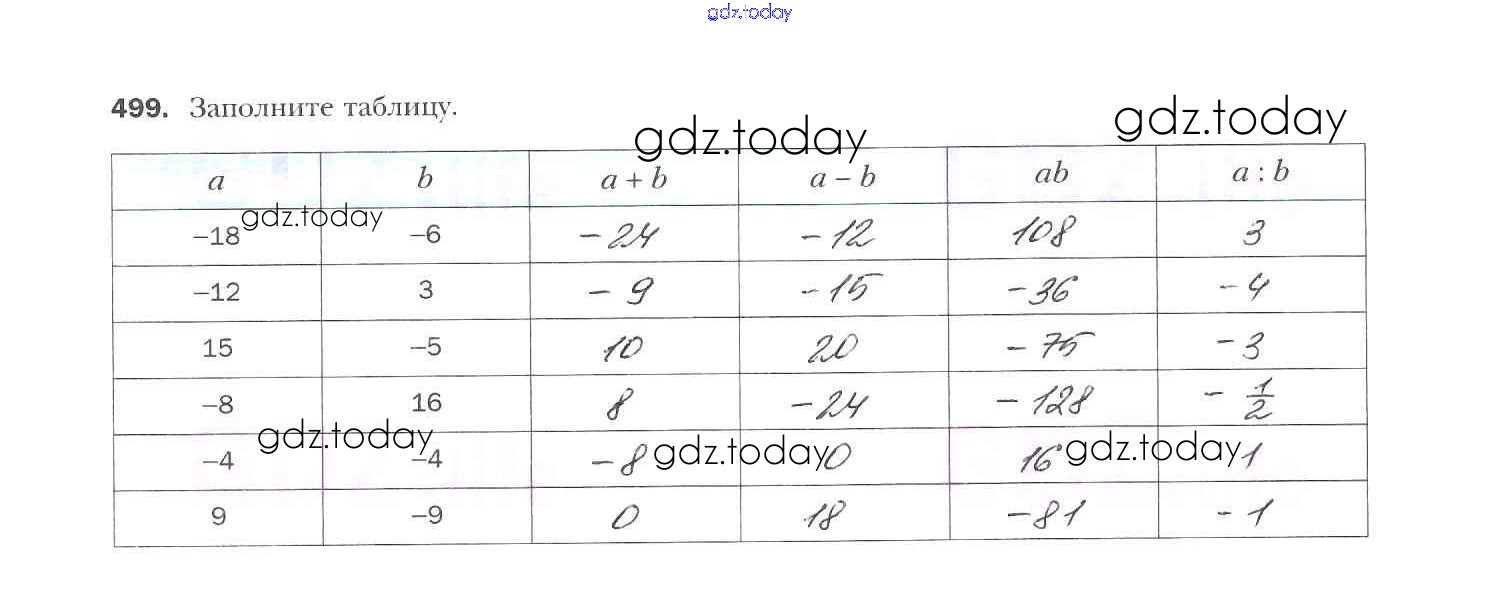 gdz.today
499. Заполните таблицу.
gdz.today gdz.today
a b a + b a – b ab a : b
gdz.today
–18 –6 –24 –12 108 3
–12 3 –9 –15 –36 –4
15 –5 10 20 –75 –3
–8 16 8 –24 –128 –1/2
gdz.today gdz.today gdz.today
–4 –4 –8 0 16 1
9 –9 0 18 –81 –1